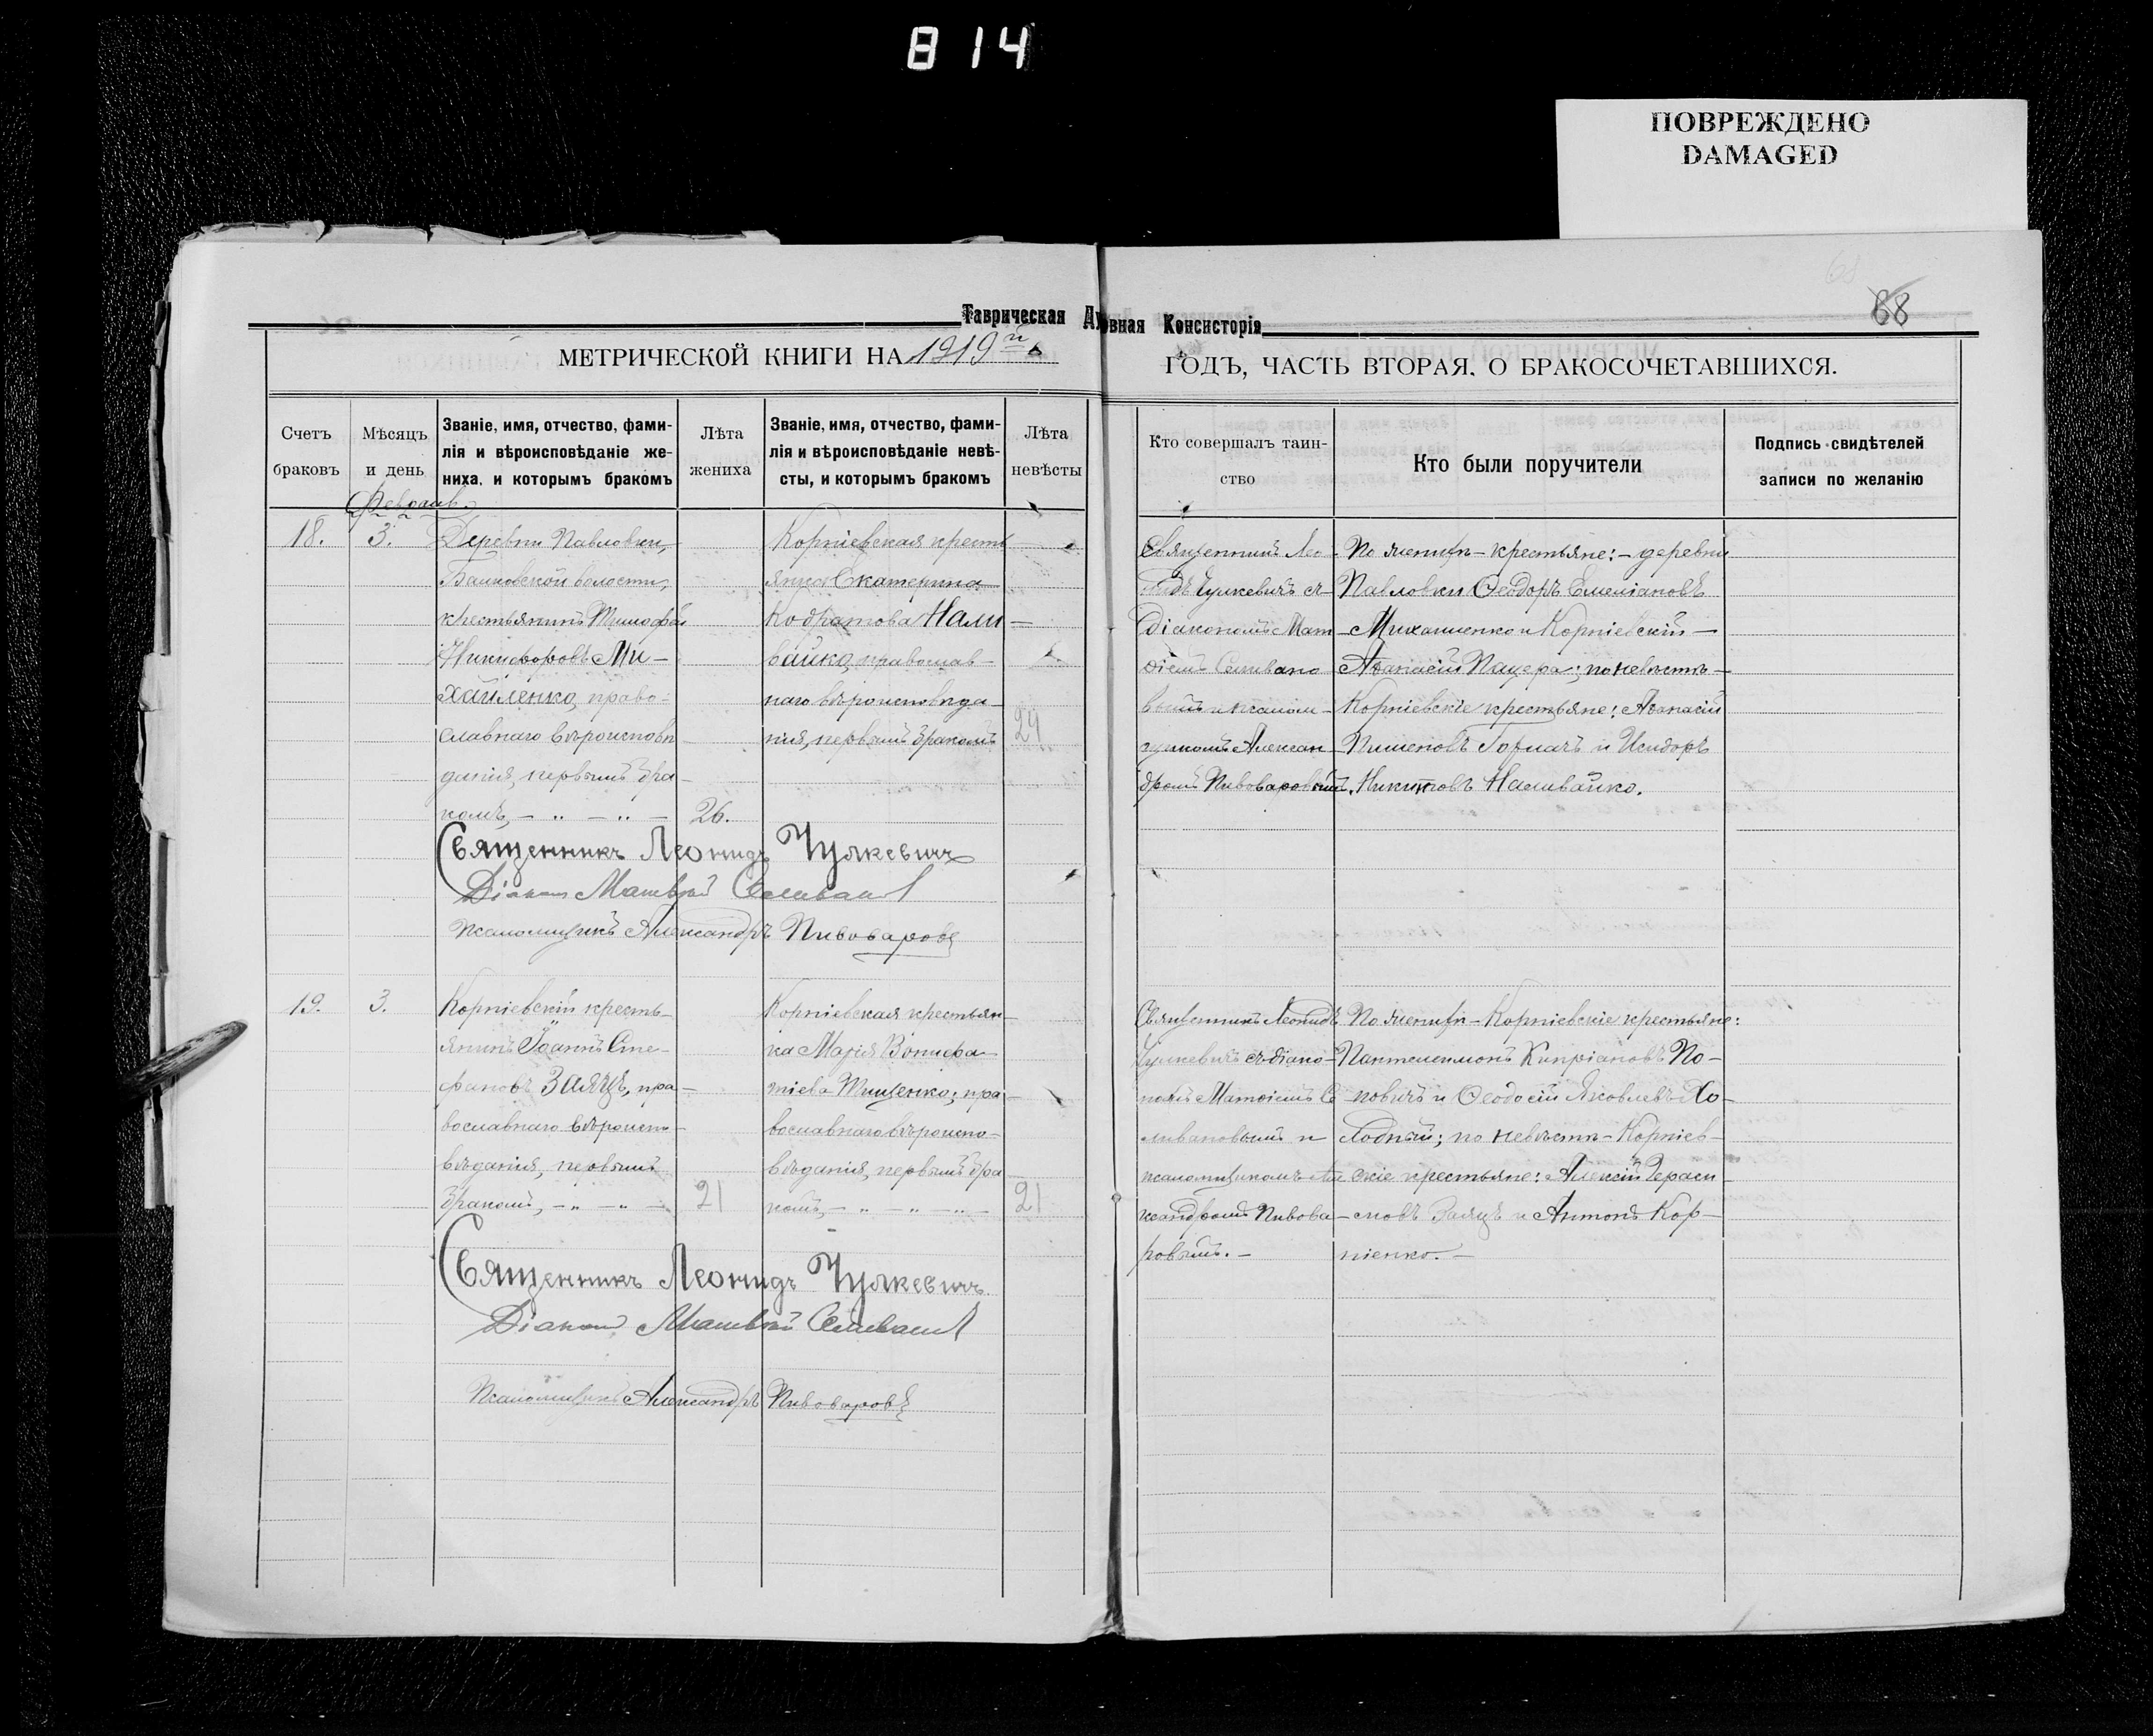 814
ПОВРЕЖДЕНО
DAMAGED
68
68
Таврическая Духовная Консисторія
МЕТРИЧЕСКОЙ КНИГИ НА 1919й ГОДЪ, ЧАСТЬ ВТОРАЯ, О БРАКОСОЧЕТАВШИХСЯ.
Счетъ
браковъ
Мѣсяцъ
и день
Званіе, имя, отчество, фами-
лія и вѣроисповѣданіе же-
ниха, и которымъ бракомъ
Лѣта
жениха
Званіе, имя, отчество, фами-
лія и вѣроисповѣданіе невѣ-
сты, и которымъ бракомъ
Лѣта
невѣсты
Кто совершалъ таин-
ство
Кто были поручители
Подпись свидѣтелей
записи по желанію
18.
3.
Деревни Павловки,
волости,
крестьянинъ Тимофей
Никифоровъ Ми-
хайленко, право-
славнаго вѣроисповѣ-
данія, первымъ бра-
комъ, — „ — „ —
26.
Корніевская кресть
янка Екатерина
Кодратова Нали-
вайко, православ-
наго вѣроисповѣда-
нія, первымъ бракомъ
24
Священникъ Лео-
нидъ Чулкевичъ съ
Діакономъ Мат-
ѳіемъ Селивано
вымъ и псалом-
щикомъ Алексан-
дромъ Пивоваровымъ.
По женихѣ — крестьяне: — деревни
Павловки Ѳеодоръ Емеліановъ
Михайленко и Корніевскій —
Аѳанасій Пацера; по невѣстѣ —
Корніевскіе крестьяне: Аѳанасій
Пименовъ Горначъ и Исидоръ
Никитовъ Наливайко.
Священникъ Леонидъ Чулкевичъ
Діаконъ Матвѣй Селиванов
Псаломщикъ Александръ Пивоваровъ
19.
3.
Корніевскій кресть-
янинъ Іоаннъ Сте-
фановъ Заяцъ, пра-
вославнаго вѣроиспо-
вѣданія, первымъ
бракомъ, — „ — „ —
21
Корніевская крестьян-
ка Марія Вонифа-
тіева Тищенко; пра-
вославнаго вѣроиспо-
вѣданія, первымъ бра
комъ, — „ — „ — „ —
21
Священникъ Леонидъ
Чулкевичъ съ діако-
номъ Матѳіемъ Се
ливановымъ и
псаломщикомъ Але
ксандромъ Пивова-
ровымъ. —
По женихѣ — Корніевскіе крестьяне:
Пантелеимонъ Кипріановъ По-
повичъ и Ѳеодосій Яковлевъ Хо-
лодный; по невѣстѣ — Корніев-
скіе крестьяне: Алексій Гераси-
мовъ Заяцъ и Антонъ Кор-
ніенко. —
Священникъ Леонидъ Чулкевичъ
Діаконъ Матвѣй Селиванов
Псаломщикъ Александръ Пивоваровъ